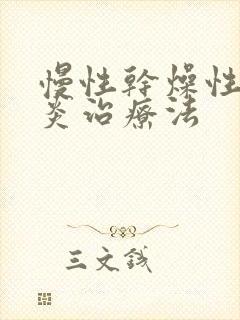 慢性幹燥性
炎治療法
三文钱